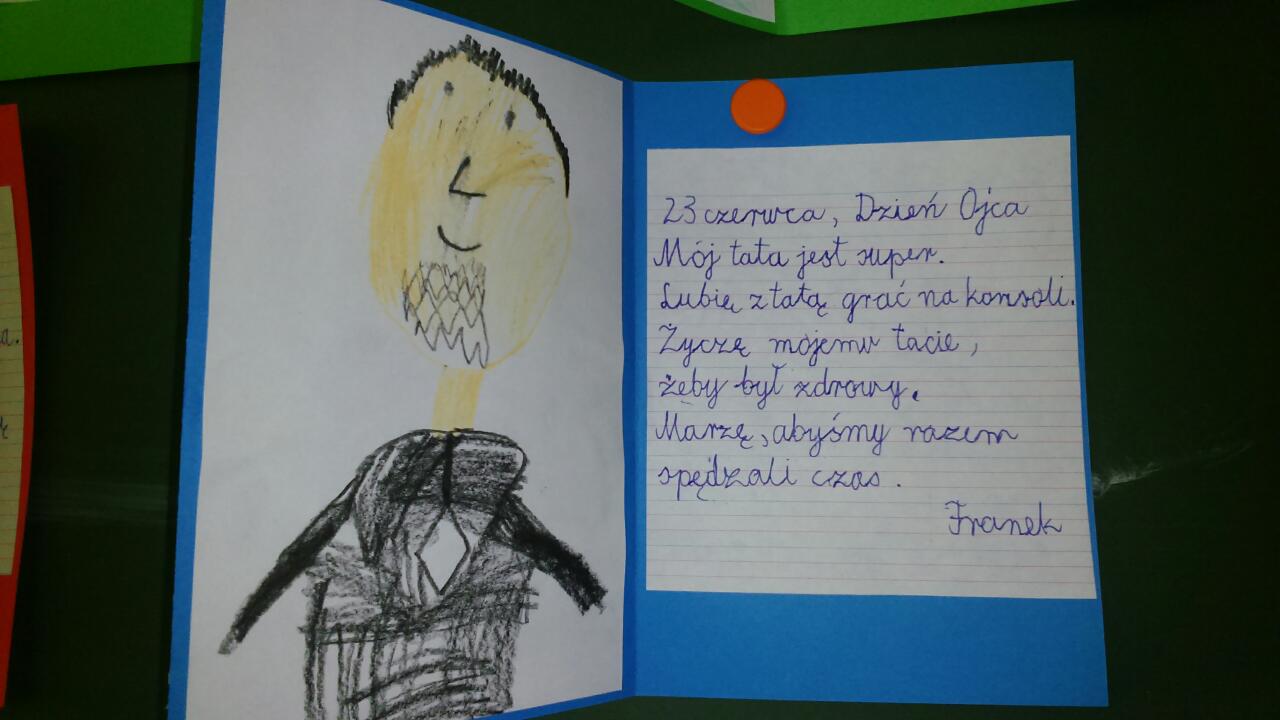 23 czerwca, Dzień Ojca
Mój tata jest super.
Lubię z tatą grać na konsoli.
Życzę mojemu tacie,
żeby był zdrowy.
Marzę, abyśmy razem
spędzali czas.
Franek